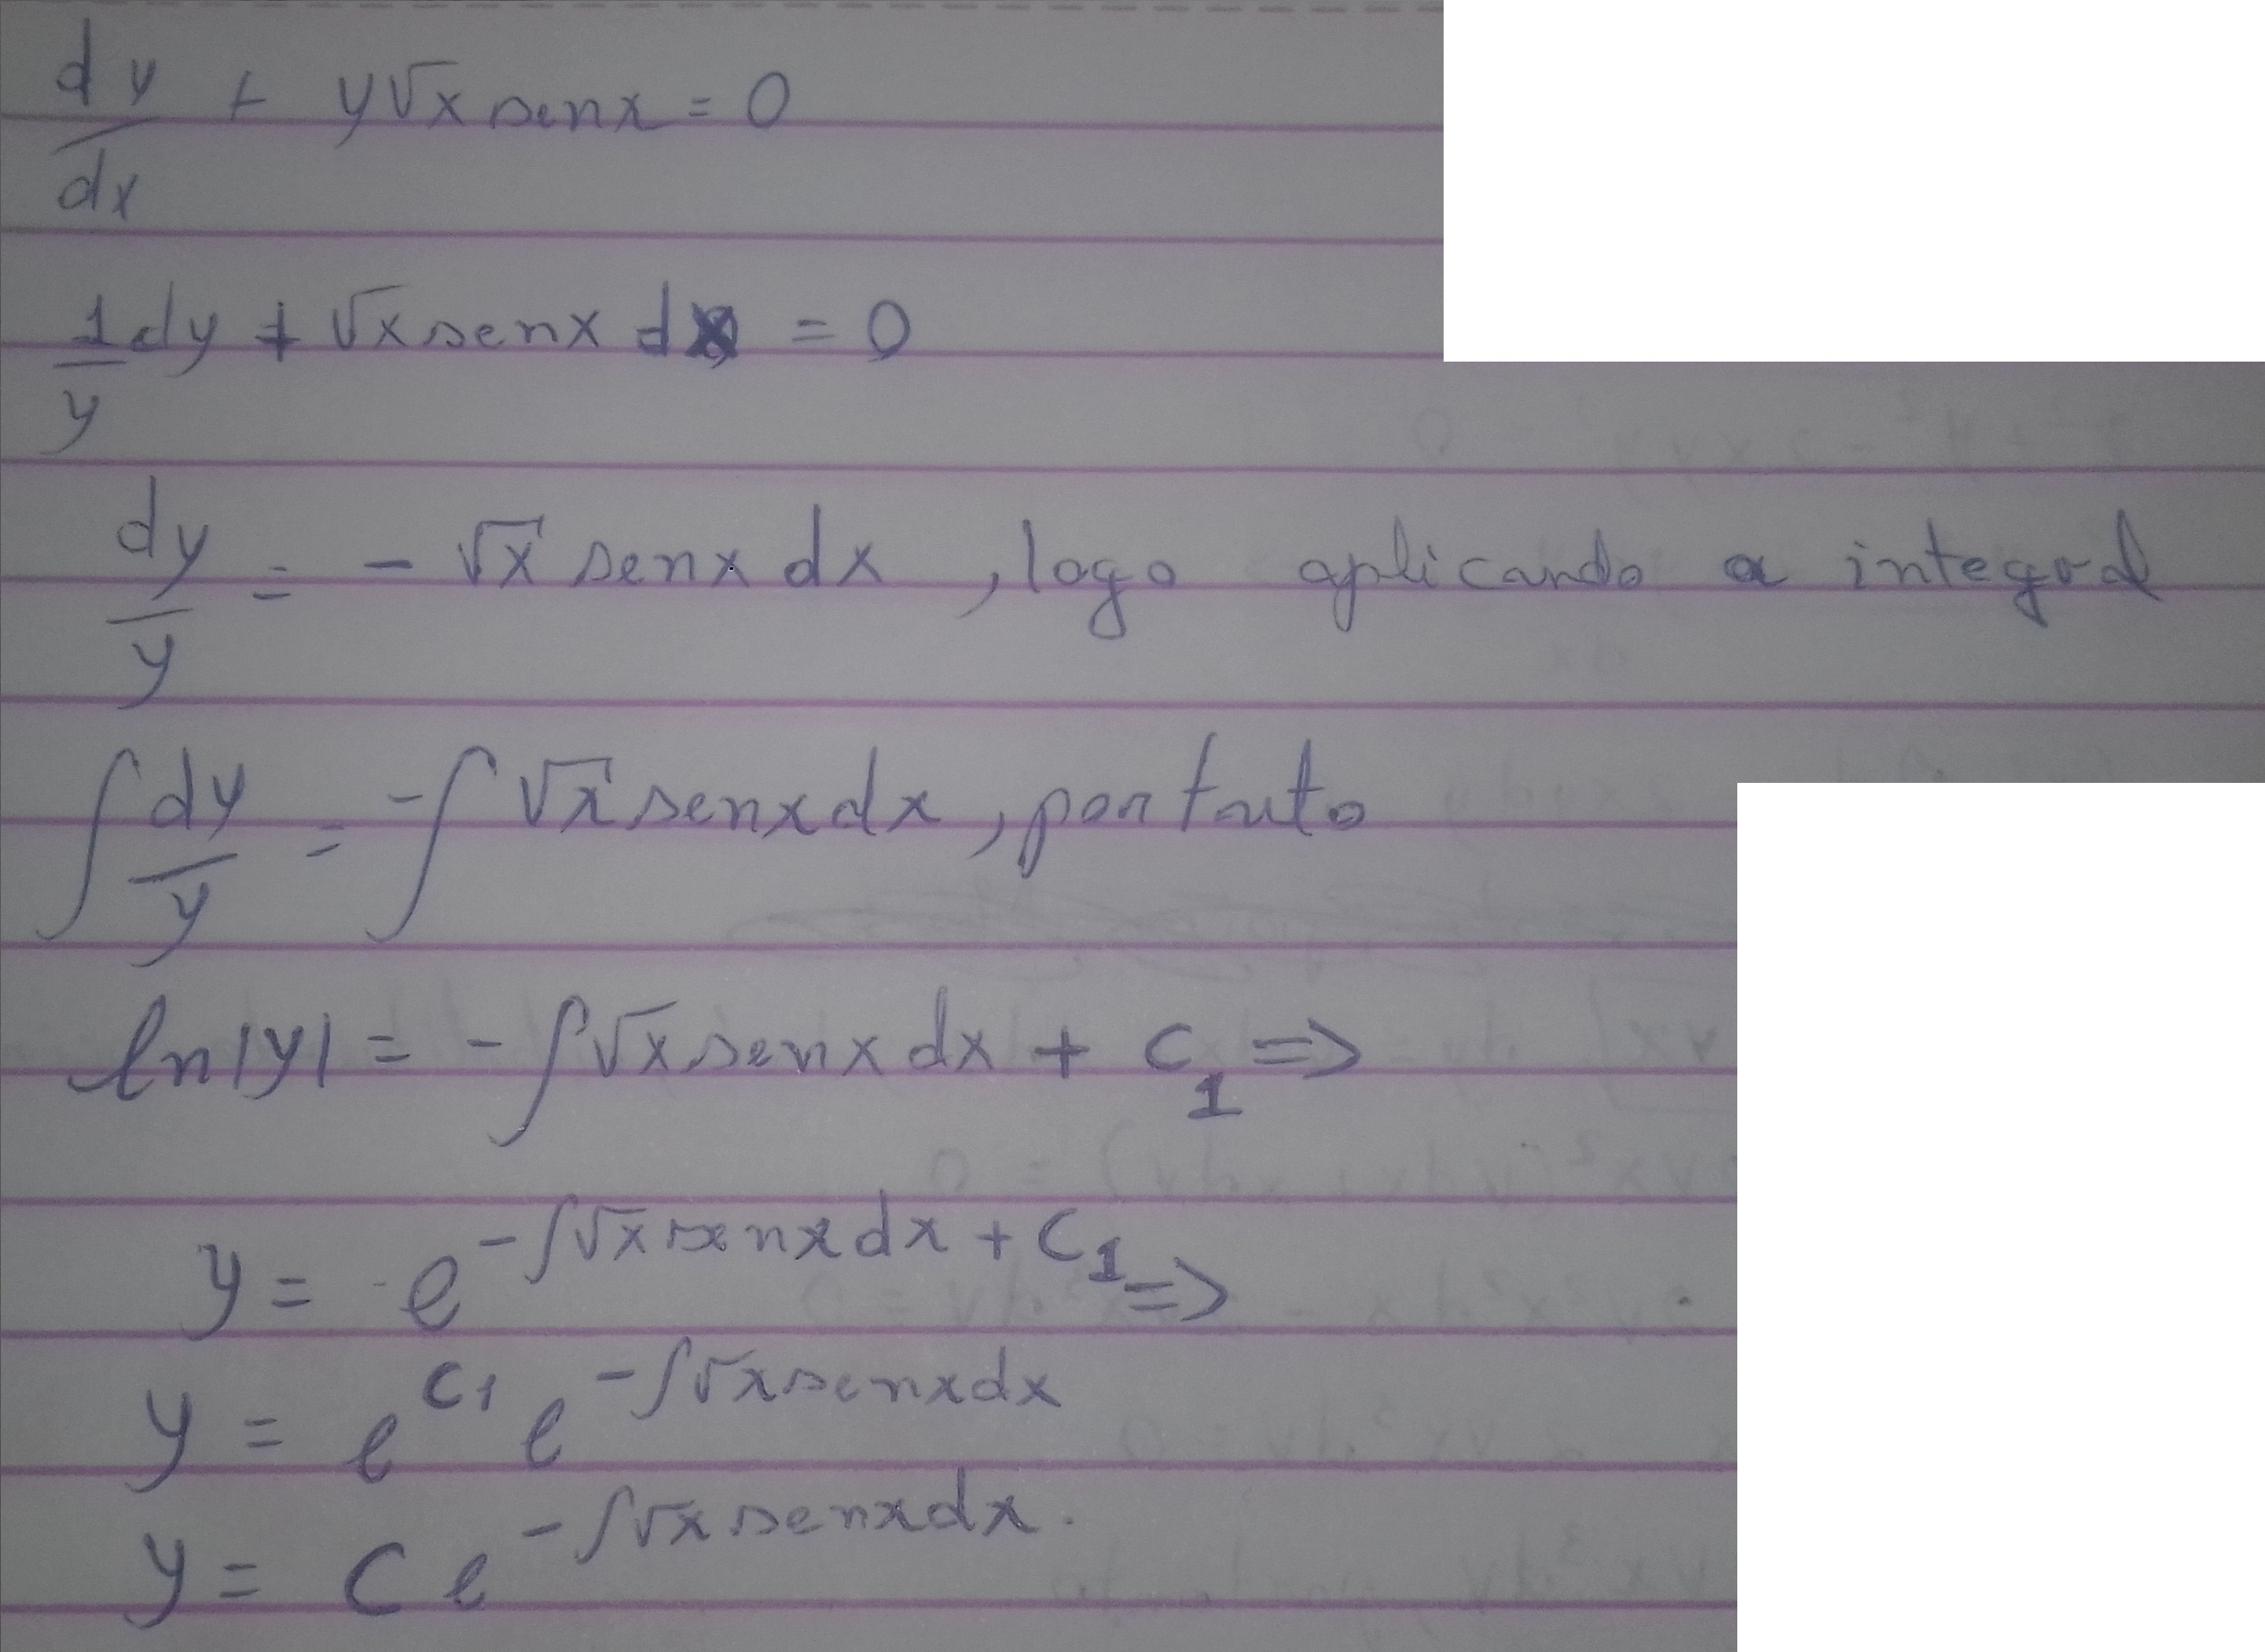 dy/dx + y√x senx = 0
1/y dy + √x senx dx = 0
dy/y = - √x senx dx , logo aplicando a integral
∫ dy/y = -∫ √x senx dx , portanto
ln|y| = - ∫ √x senx dx + C₁ =>
y = e^(-∫√x senx dx + C₁) =>
y = e^(C₁) e^(-∫√x senx dx)
y = C e^(-∫√x senx dx).